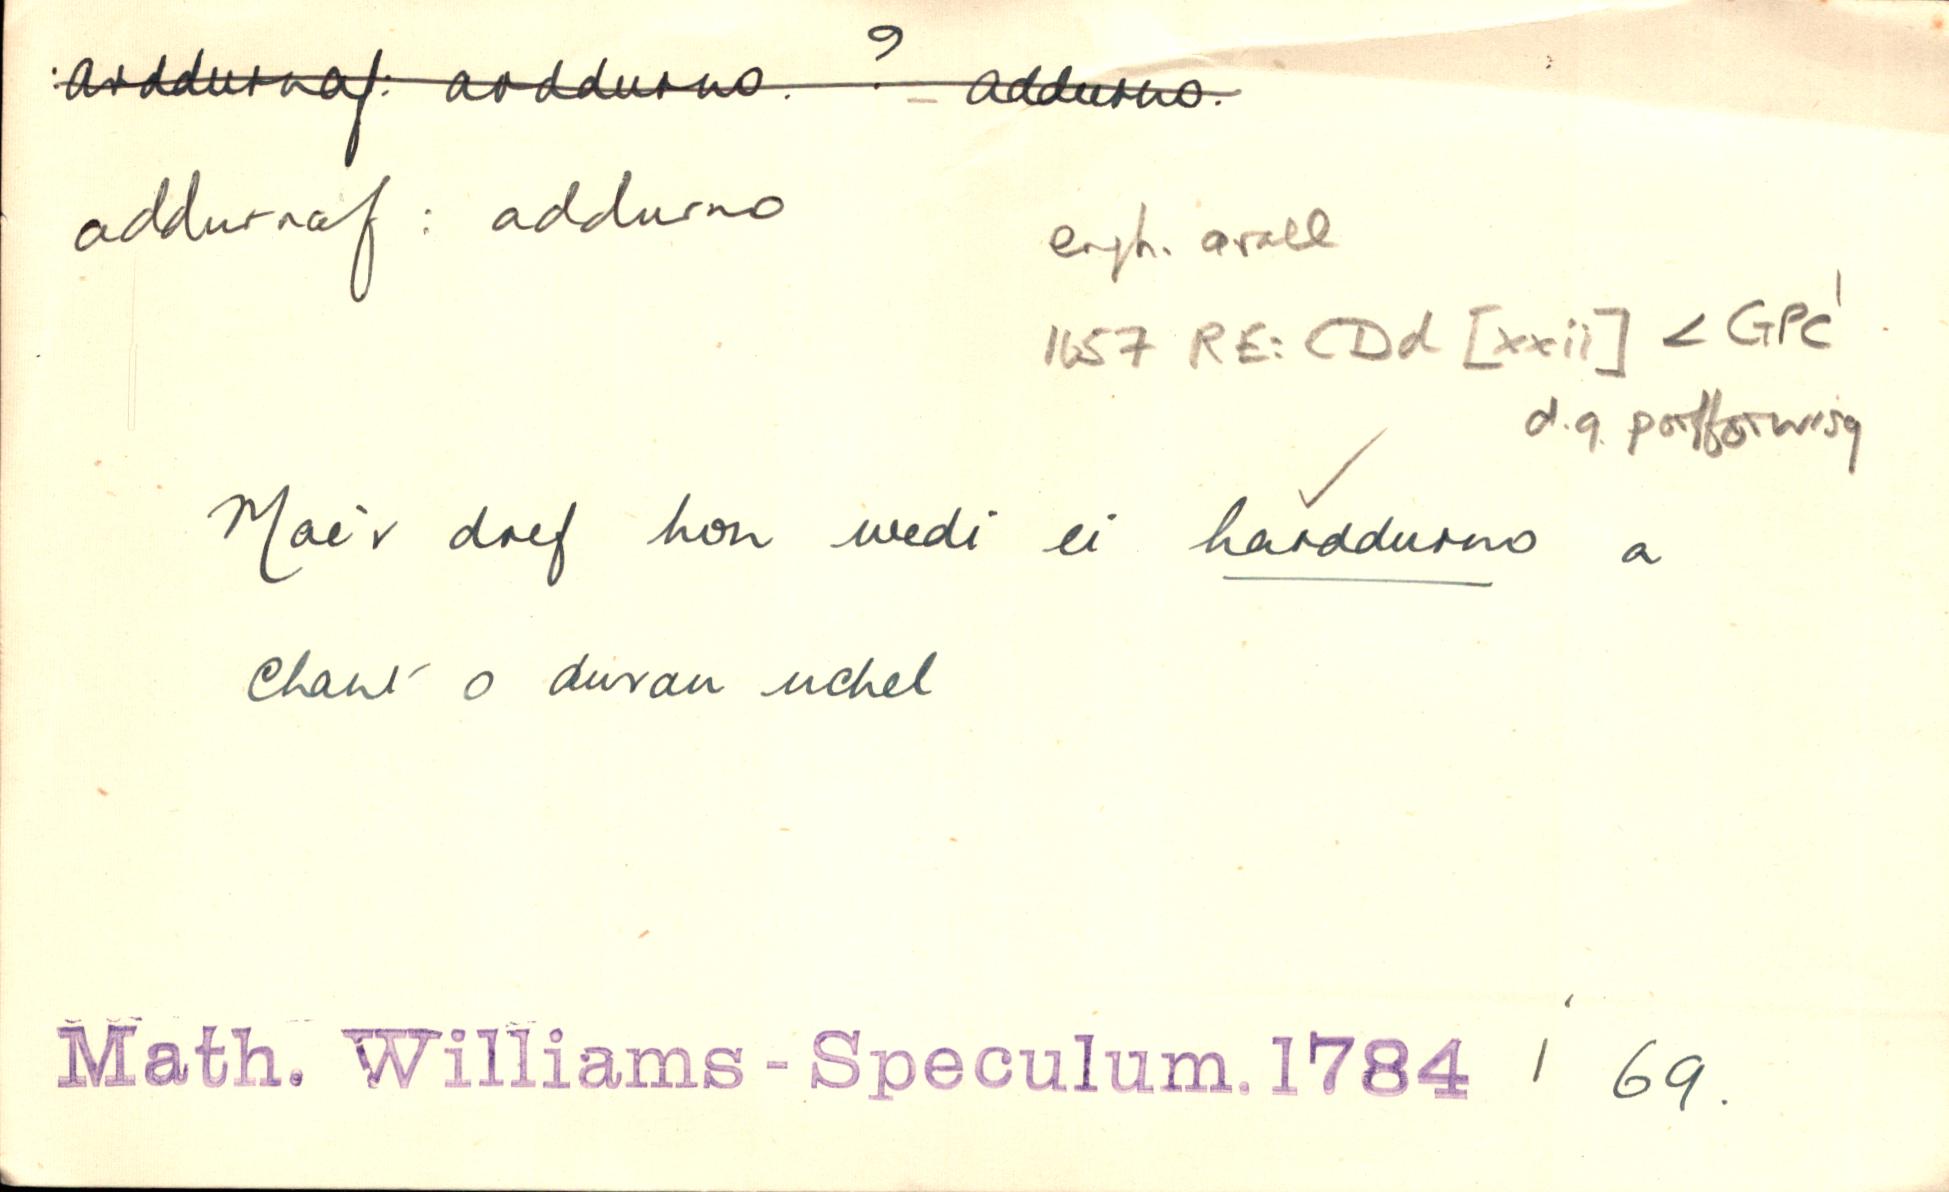 arddurnaf: arddurno. ? – addurno.
addurnaf : addurno
engh. arall
1657 RE: CDd [xxii] < GPC¹
d.g. porfforwisg
Mae'r dref hon wedi ei harddurno a
Chant o duran uchel
Math. Williams - Speculum. 1784 i 69.